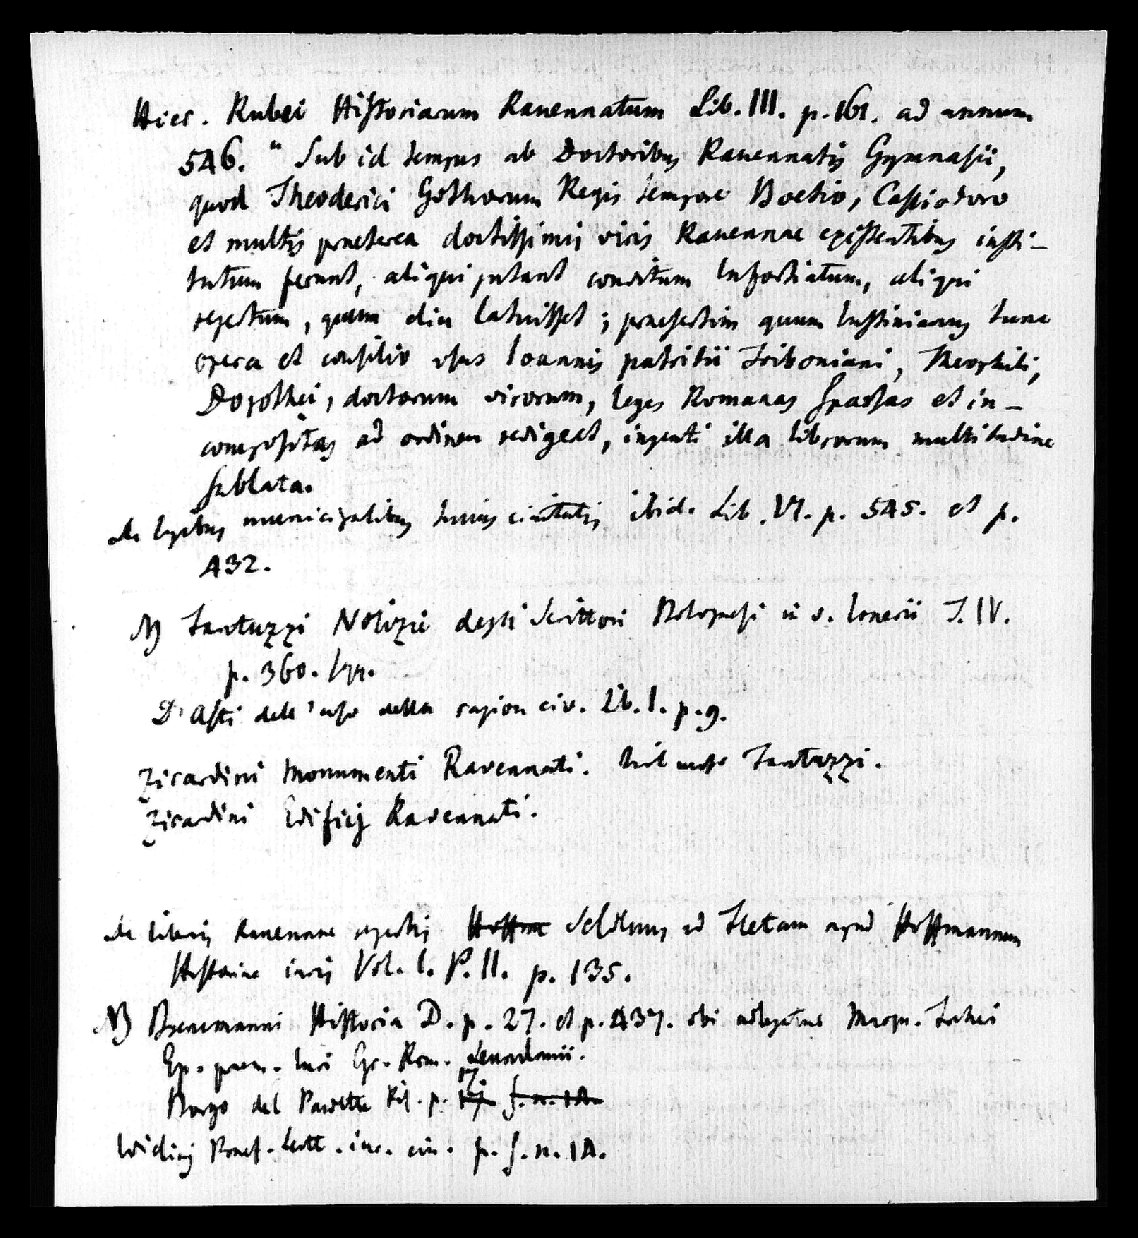 Hier. Rubei Historiarum Ravennatum Lib. III. p. 161. ad annum
546. " Sub id tempus ab Doctoribus Ravennatis Gymnasii,
quod Theoderici Gothorum Regis tempore Boetio, Cassiodoro
et multis praeterea doctissimis viris Ravennae existentibus insti-
tutum ferunt, aliqui putant conditum Infortiatum, aliqui
repertum, quum diu latuisset; praesertim quum Iustinianus tunc
opera et consilio usus Ioannis patritii Triboniani, Theophili,
Dorothei, doctorum virorum, leges Romanas sparsas et in-
compositas ad ordinem redigeret, ingenti illa librorum multitudine
sublata.
de legibus municipalibus huius civitatis ibid. Lib. VI. p. 545. et p.
432.
NB Fantuzzi Notizie degli Scrittori Bolognesi in v. Irnerii T. IV.
p. 360. sqq.
D'Asti dell'uso della ragion civ. Lib. I. p. 9.
Zirardini Monumenti Ravennati. Fantuzzi.
Zirardini Edificij Ravennati.
de libris Ravennae repertis Hoffm Seldenus ad Fletam apud Hoffmannum
Historiae iuris Vol. I. P. II. p. 135.
NB Brencmanni Historia D. p. 27. et p. 437. ubi
Ep. praem. Iuri Gr. Rom. Leunclavii.
Borgo dal p. 17. f. n. 14
p. f. n. 14.